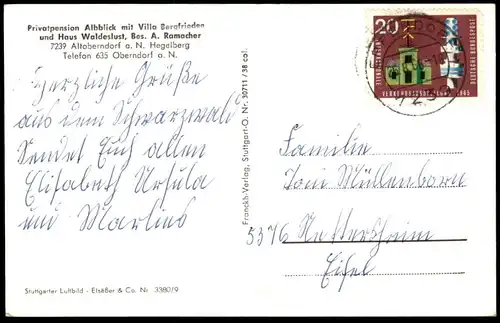 Privatpension Albblick mit Villa Bergfrieden
und Haus Waldeslust, Bes. A. Ramacher
7239 Altoberndorf a. N. Hegelberg
Telefon 635 Oberndorf a. N.
Herzliche Grüße
aus dem Schwarzwald
sendet Euch allen
Elisabeth Ursula
und Marlies
Stuttgarter Luftbild - Elsäßer & Co. Nr. 3380/9
Franckh-Verlag, Stuttgart-O. Nr. 30711 / 38 col.
20
DEUTSCHE BUNDESPOST
VERKEHRSAUSSTELLUNG 1965
Familie
Toni Müllenborn
5376 Nettersheim
Eifel